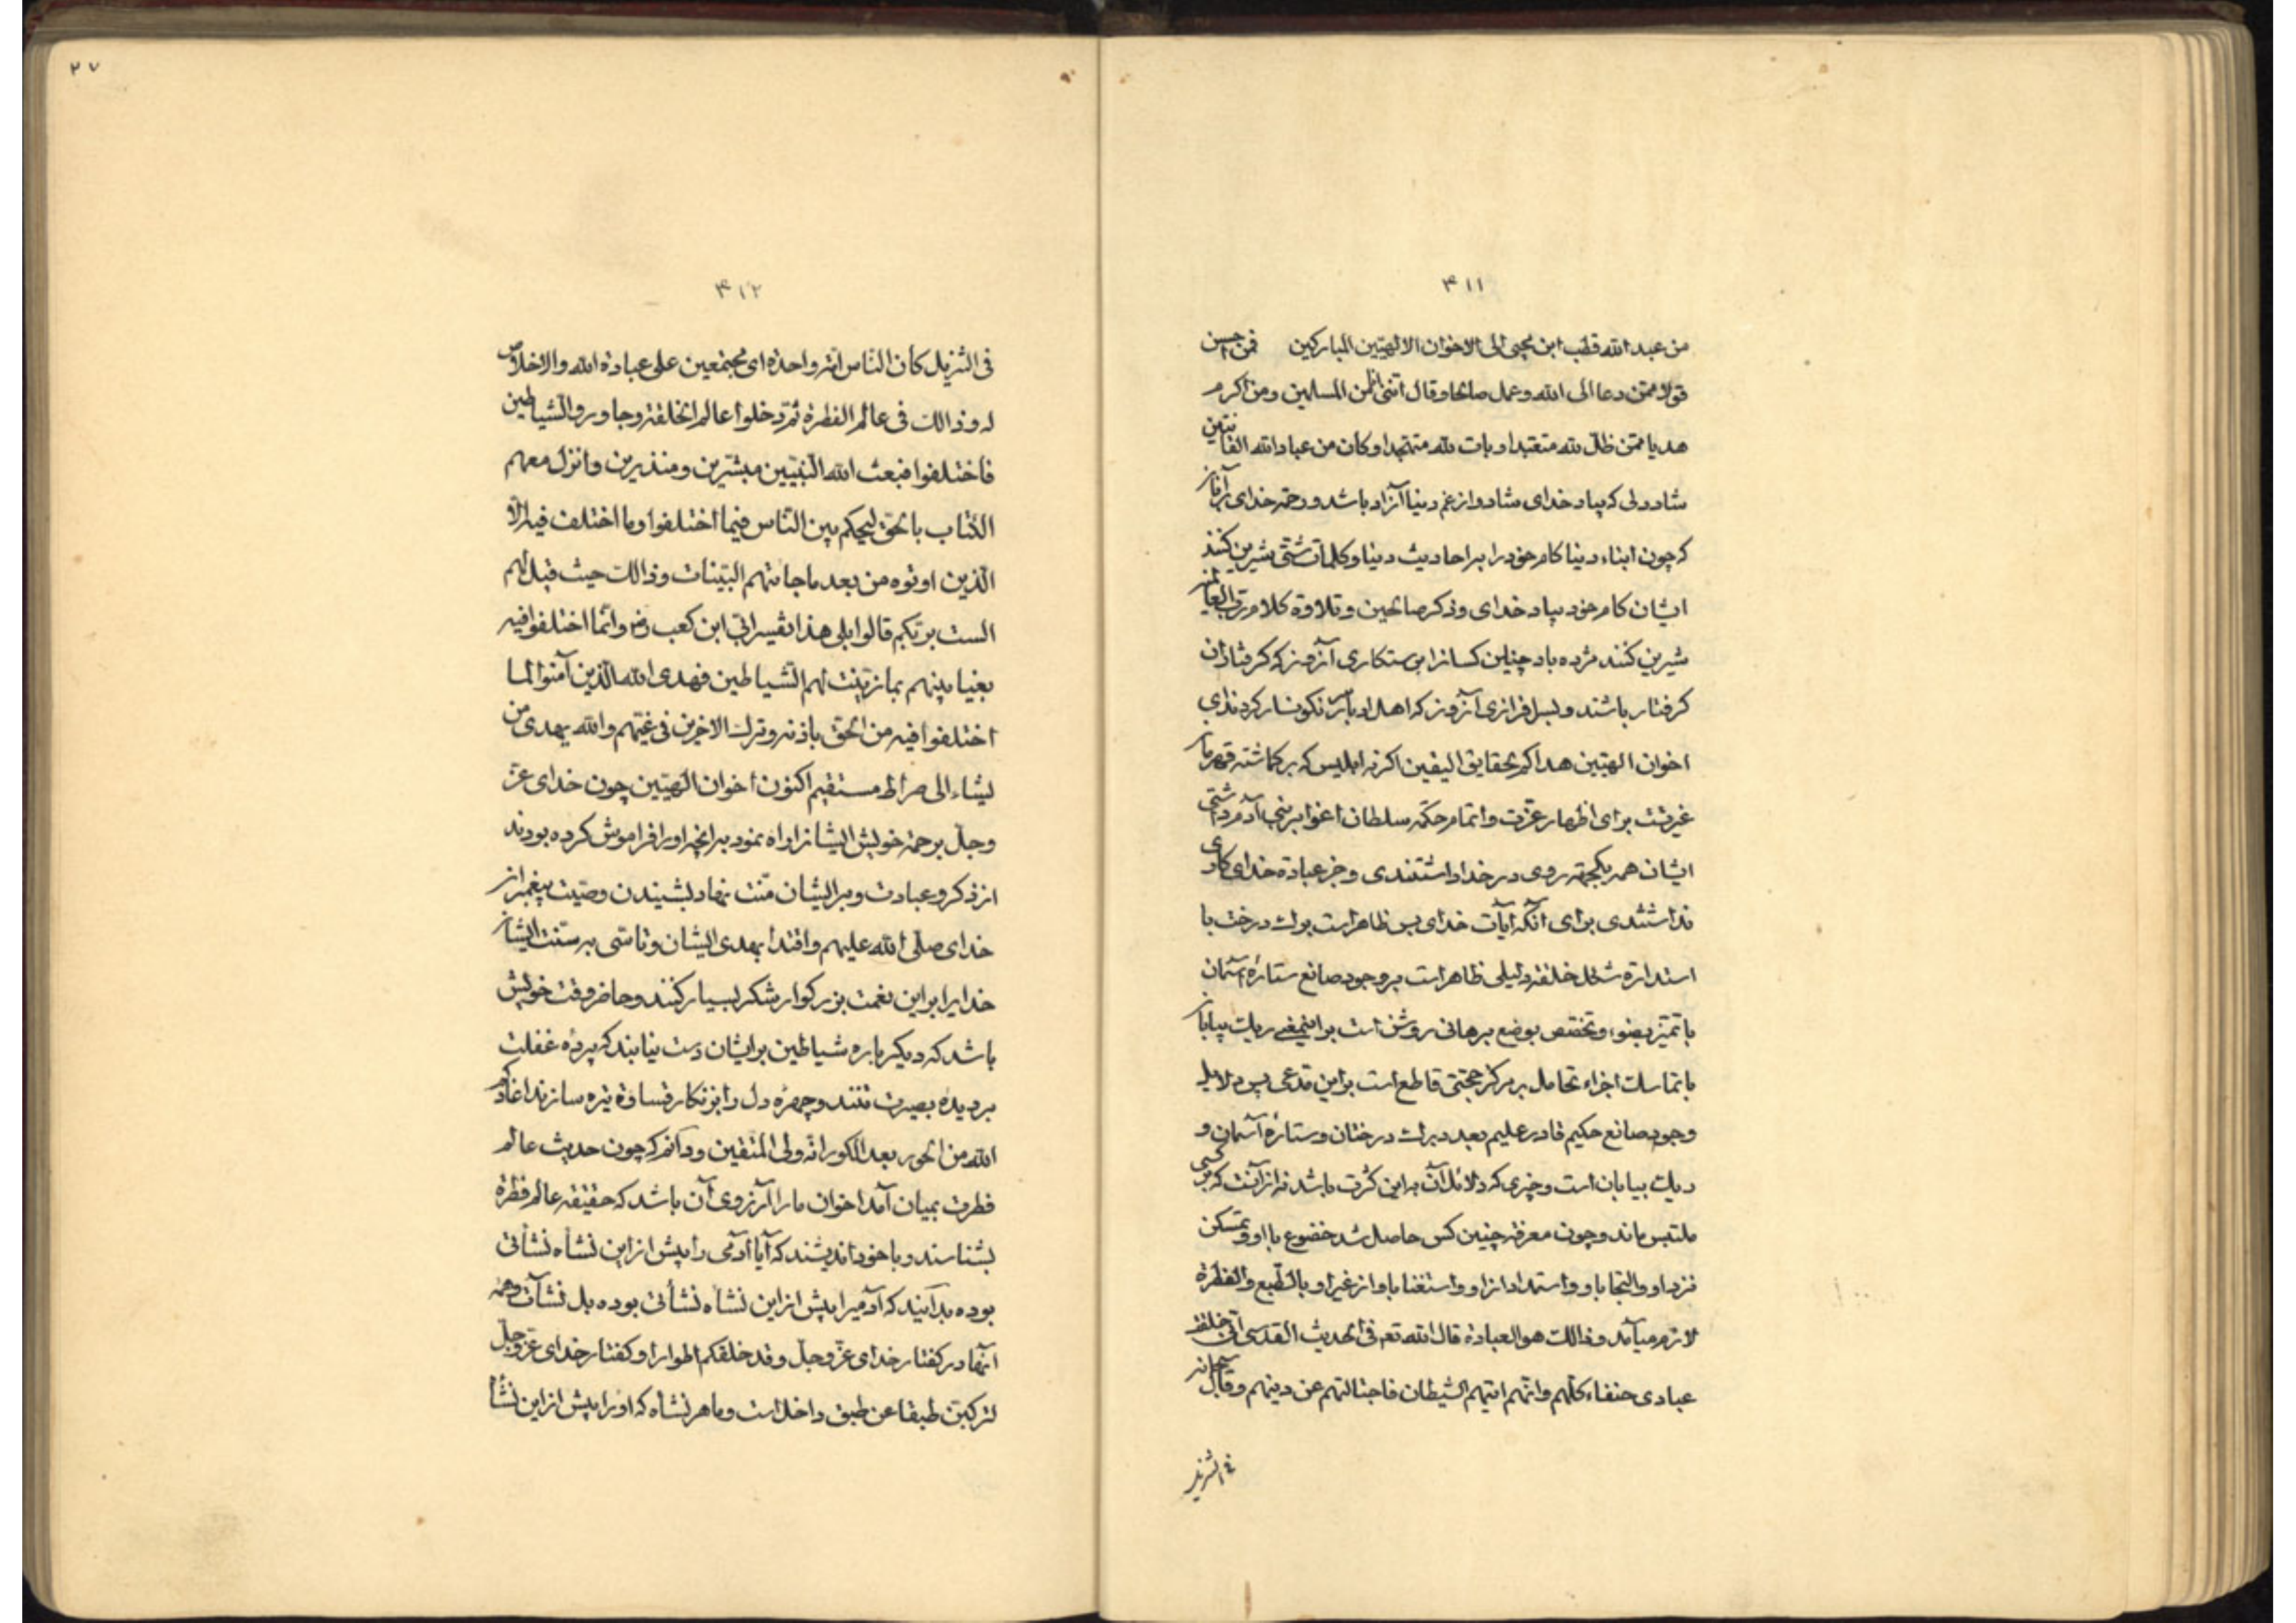 ۳۱۱
من عبد الله قطب ابن محیی الی الاخوان الالهیین المبارکین فمن احسن
قولا ممن دعا الی الله و عمل صالحا و قال اننی من المسلمین و من اکرم
هدیا ممن ظل لله متعبدا و بات لله متهجدا و کان من عباد الله القانتین
شاد دلی که بیاد خدای شاد و از غم دنیا آزاد باشد و رحمة خدای بر آنان
که چون ابناء دنیا کام خود را براحادیث دنیا و کلمات شتی شیرین کنند
ایشان کام خود بیاد خدای و ذکر صالحین و تلاوة کلام رب العالمین
شیرین کنند مژده باد چنین کسانرا برستکاری آنروز که کرفتاران
کرفتار باشند و بسرافرازی آنروز که اهل ادبار نکونسار کردند ای
اخوان الهیین هداکم بحقایق الیقین اکر نه ابلیس که بر کماشته قهرمان
غیرتست برای اظهار عزت و اتمام حکمة سلطان اغوا بر بنی آدم داشتی
ایشان همه یکجهته روی در خدا داشتندی و جز عبادة خدای کاری
نداشتندی برای آنکه آیات خدای بس ظاهر است برك درخت با
استدارة شکل خلقة دلیلی ظاهر است بر وجود صانع ستارۀ آسمان
با تمیز بضوء و تخصص بوضع برهانی روشن است بر اینمعنی ریك بیابان
با تماسك اجزاء تحامل بر مرکز حجتی قاطع است براین مدعی پس دلایل
وجود صانع حکیم قادر علیم بعدد برك درختان و ستارۀ آسمان و
ریك بیابان است و چیزی که دلائل آن باین کثرت باشد نه از آنست که بر کسی
ملتبس ماند و چون معرفة چنین کس حاصل شد خضوع با او و تمسکن
نزد او و التجا باو و استمداد از او و استغنا باو از غیر او بالطبع و الفطرة
لازم میآمد و ذالك هو العبادة قال الله تعه فی الحدیث القدسی انی خلقت
عبادی حنفاء کلهم و انهم اتیهم الشیطان فاجتالتهم عن دینهم و قال سبحانه
فی التنزیل
۲۷
۳۱۲
فی التنزیل کان الناس امة واحدة ای مجتمعین علی عبادة الله و الاخلاص
له و ذالك فی عالم الفطرة ثم دخلوا عالم الخلقة و جاوروا الشیاطین
فاختلفوا فبعث الله النبیین مبشرین و منذرین و انزل معهم
الکتاب بالحق لیحکم بین الناس فیما اختلفوا و ما اختلف فیه الا
الذین اوتوه من بعد ما جائتهم البینات و ذالك حیث قیل لهم
الست بربکم قالوا بلی هذا تفسیر ابی ابن کعب رض و انما اختلفوا فیه
بغیا بینهم بما زینت لهم الشیاطین فهدی الله الذین آمنوا لما
اختلفوا فیه من الحق باذنه و ترك الاخرین فی غیهم و الله یهدی من
یشاء الی صراط مستقیم اکنون اخوان الهیین چون خدای عز
و جل برحمة خویش ایشانرا راه نمود برانچه اورا فراموش کرده بودند
از ذکر و عبادت و بر ایشان منت نهاد بشنیدن وصیت پیغمبران
خدای صلی الله علیهم و اقتدا بهدی ایشان و تاسی بر سنت ایشان
خدایرا براین نعمت بزرکوار شکر بسیار کنند و حاضر وقت خویش
باشد که دیکر باره شیاطین برایشان دست نیابند که پردۀ غفلت
بر دیدۀ بصیرت تنند و چهرۀ دل را بزنکار قساوة تیره سازند اعاذکم
الله من الحور بعد الکور انه ولی المتقین و دانم که چون حدیث عالم
فطرت بمیان آمد اخوان ما را آرزوی آن باشد که حقیقة عالم فطرة
بشناسند و با خود اندیشند که آیا آدمی را پیش از این نشاه نشأتی
بوده بدانید که آدمیرا پیش از این نشاه نشأتی بوده بل نشآت و همه
آنها در کفتار خدای عز و جل و قد خلقکم اطوارا و کفتار خدای عز و جل
لترکبن طبقا عن طبق داخل است و ما هر نشاه که اورا پیش از این نشأ